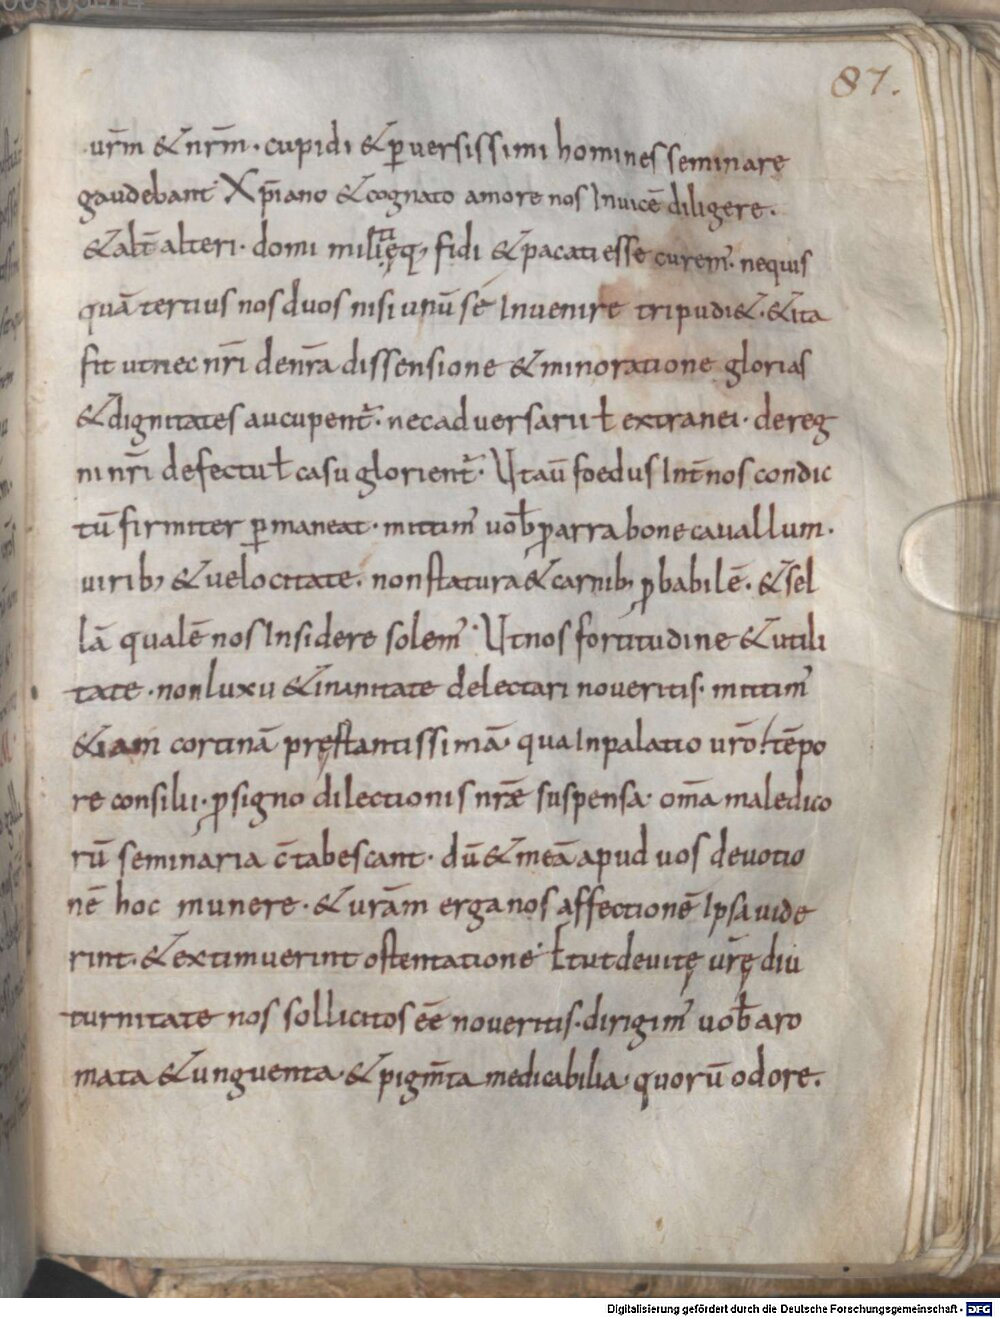 87.
urm̄ & nrm̄ · cupidi & ꝑuersissimi homines seminare
gaudebant Xp̄iano & cognato amore nos Inuicē diligere.
& alt̄ alteri · domi militięq; fidi & pacati esse curem' · nequis
quā tertius nos duos nisi unū sé Inuenire tripudi& · & ita
fit ut nec nr̄i de nr̄a dissensione & minoratione glorias
& dignitates aucupent̄ · nec aduersarii ł extranei · de reg
ni nr̄i defectu ł casu glorient̄ · Ut aū foedus Int̄ nos condic
tū firmiter ꝑmaneat · mittim' uob̄ ꝓ arra bone cauallum ·
uirib; & uelocitate · non statura & carnib; ꝓbabilē · & sel
lā qualē nos Insidere solem' · Ut nos fortitudine & utili
tate · non luxu & inanitate delectari noueritis · mittim'
& iam cortinā pręstantissimā · qua In palatio uro tēpo
re consilii · ꝓ signo dilectionis nrē suspensa · om̄a maledico
rū seminaria c̄tabescant · dū & meā apud uos deuotio
nē hoc munere · & urām erga nos affectionē Ipsa uide
rint · & extimuerint ostentatione · Ł tut de uitę urę diu
turnitate nos sollicitos eē noueritis · dirigim' uob̄ aro
mata & unguenta · & pigm̄ta medicabilia · quorū odore.
Digitalisierung gefördert durch die Deutsche Forschungsgemeinschaft · DFG